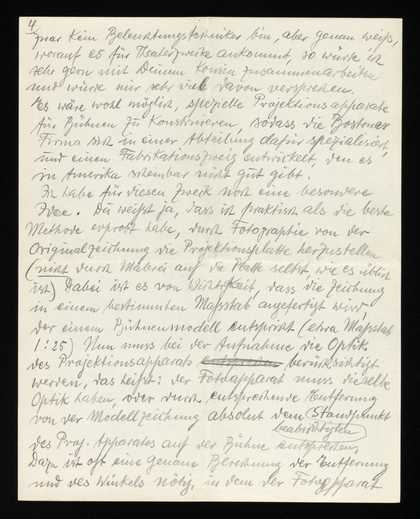 4
zwar kein Beleuchtungstechniker bin, aber genau weiß,
worauf es für Theaterzwecke ankommt, so würde ich
sehr gern mit Deinem Konzern zusammenarbeiten
und würde mir sehr viel davon versprechen.
Es wäre wohl möglich, spezielle Projektionsapparate
für Bühnen zu konstruieren, sodass die Bostoner
Firma sich in einer Abteilung dafür spezialisiert
und einen Fabrikationszweig entwickelt, den es
in Amerika scheinbar nicht gut gibt.
Ich habe für diesen Zweck noch eine besondere
Idee. Du weißt ja, dass ich praktisch als die beste
Methode erprobt habe, durch Fotographie von der
Originalzeichnung die Projektionsplatte herzustellen
(nicht durch Malerei auf die Platte selbst, wie es üblich
ist) Dabei ist es von Wichtigkeit, dass die Zeichnung
in einem bestimmten Maßstab angefertigt wird,
der einem Bühnenmodell entspricht (etwa Maßstab
1:25) Nun muss bei der Aufnahme die Optik
des Projektionsapparats berücksichtigt
werden, das heißt: der Fotoapparat muss dieselbe
Optik haben, oder durch entsprechende Entfernung
von der Modellzeichnung absolut dem Standpunkt
beabsichtigten
des Proj. Apparates auf der Bühne entsprechen.
Dazu ist oft eine genaue Berechnung der Entfernung
und des Winkels nötig, in dem der Fotoapparat